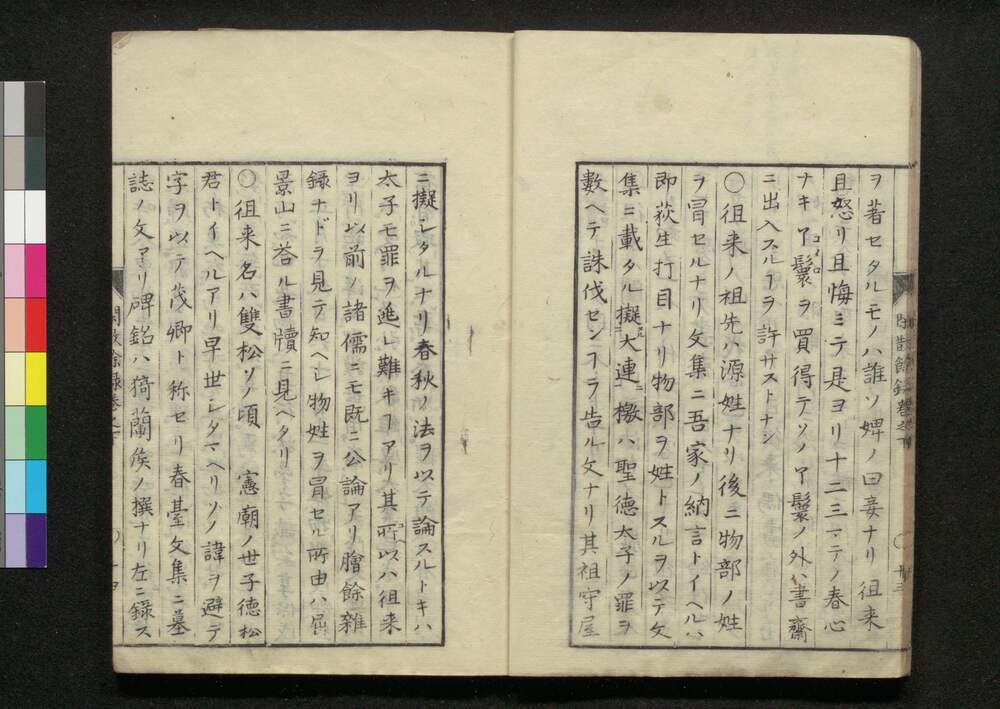 ヲ著セタルモノハ誰ソ婢ノ曰妾ナリ徂来
且怒リ且悔ミテ是ヨリ十二三マテノ春心
ナキ丫鬟ヲ買得テソノ丫鬟ノ外ハ書齋
コイロ
ニ出入スルヿヲ許サストナン
〇徂来ノ祖先ハ源姓ナリ後ニ物部ノ姓
ヲ冒セルナリ文集ニ吾家ノ納言トイヘルハ
即荻生打目ナリ物部ヲ姓トスルヲ以テ文
集ニ載タル擬大連檄ハ聖徳太子ノ罪ヲ
數ヘテ誅伐センヿヲ告ル文ナリ其祖守屋
ニ擬シタルナリ春秋ノ法ヲ以テ論スルトキハ
太子モ罪ヲ逃レ難キヿアリ其所以ハ徂来
ヨリ以前ノ諸儒ニモ既ニ公論アリ膾餘雜
録ナドヲ見テ知ヘシ物姓ヲ冒セル所由ハ屈
景山ニ荅ル書牘ニ見ヘタリ
〇徂来名ハ雙松ソノ頃 憲廟ノ世子徳松
君トイヘルアリ早世シタマヘリソノ諱ヲ避テ
字ヲ以テ茂卿ト称セリ春臺文集ニ墓
誌ノ文アリ碑銘ハ猗蘭侯ノ撰ナリ左ニ録ス